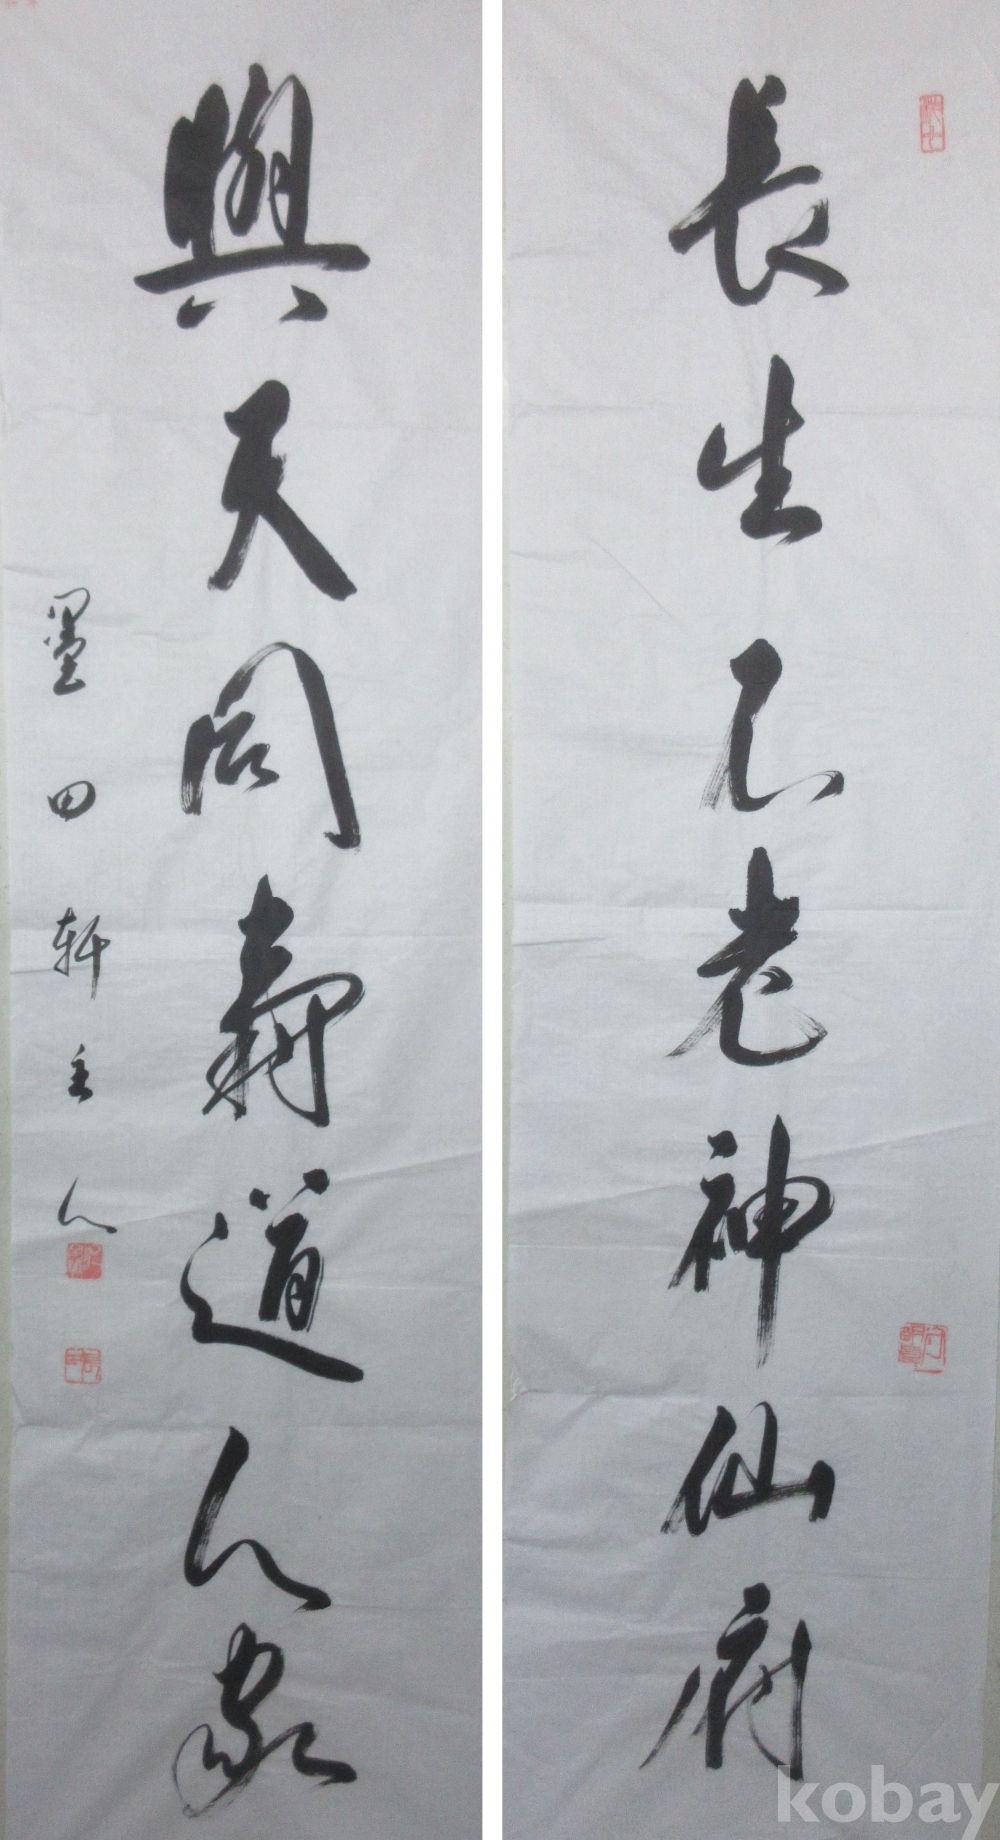 長生不老神仙府
與天同壽道人家
墨田軒主人
kobay